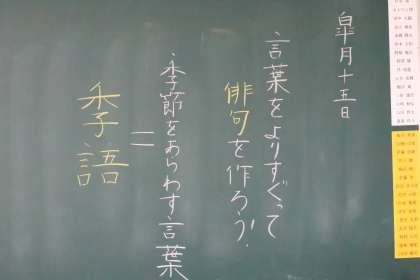 皐月十五日
言葉をよりすぐって
俳句を作ろう!
・季節をあらわす言葉
＝
季語